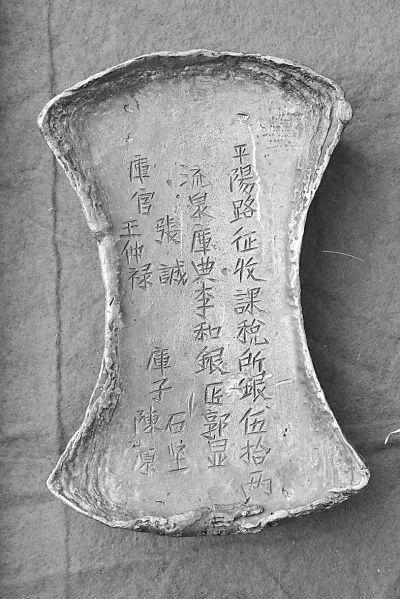 平陽路征收課税所銀伍拾两
流泉庫典李和銀匠郭显
張誠 石坚
庫官 庫子
王仲禄 陳原